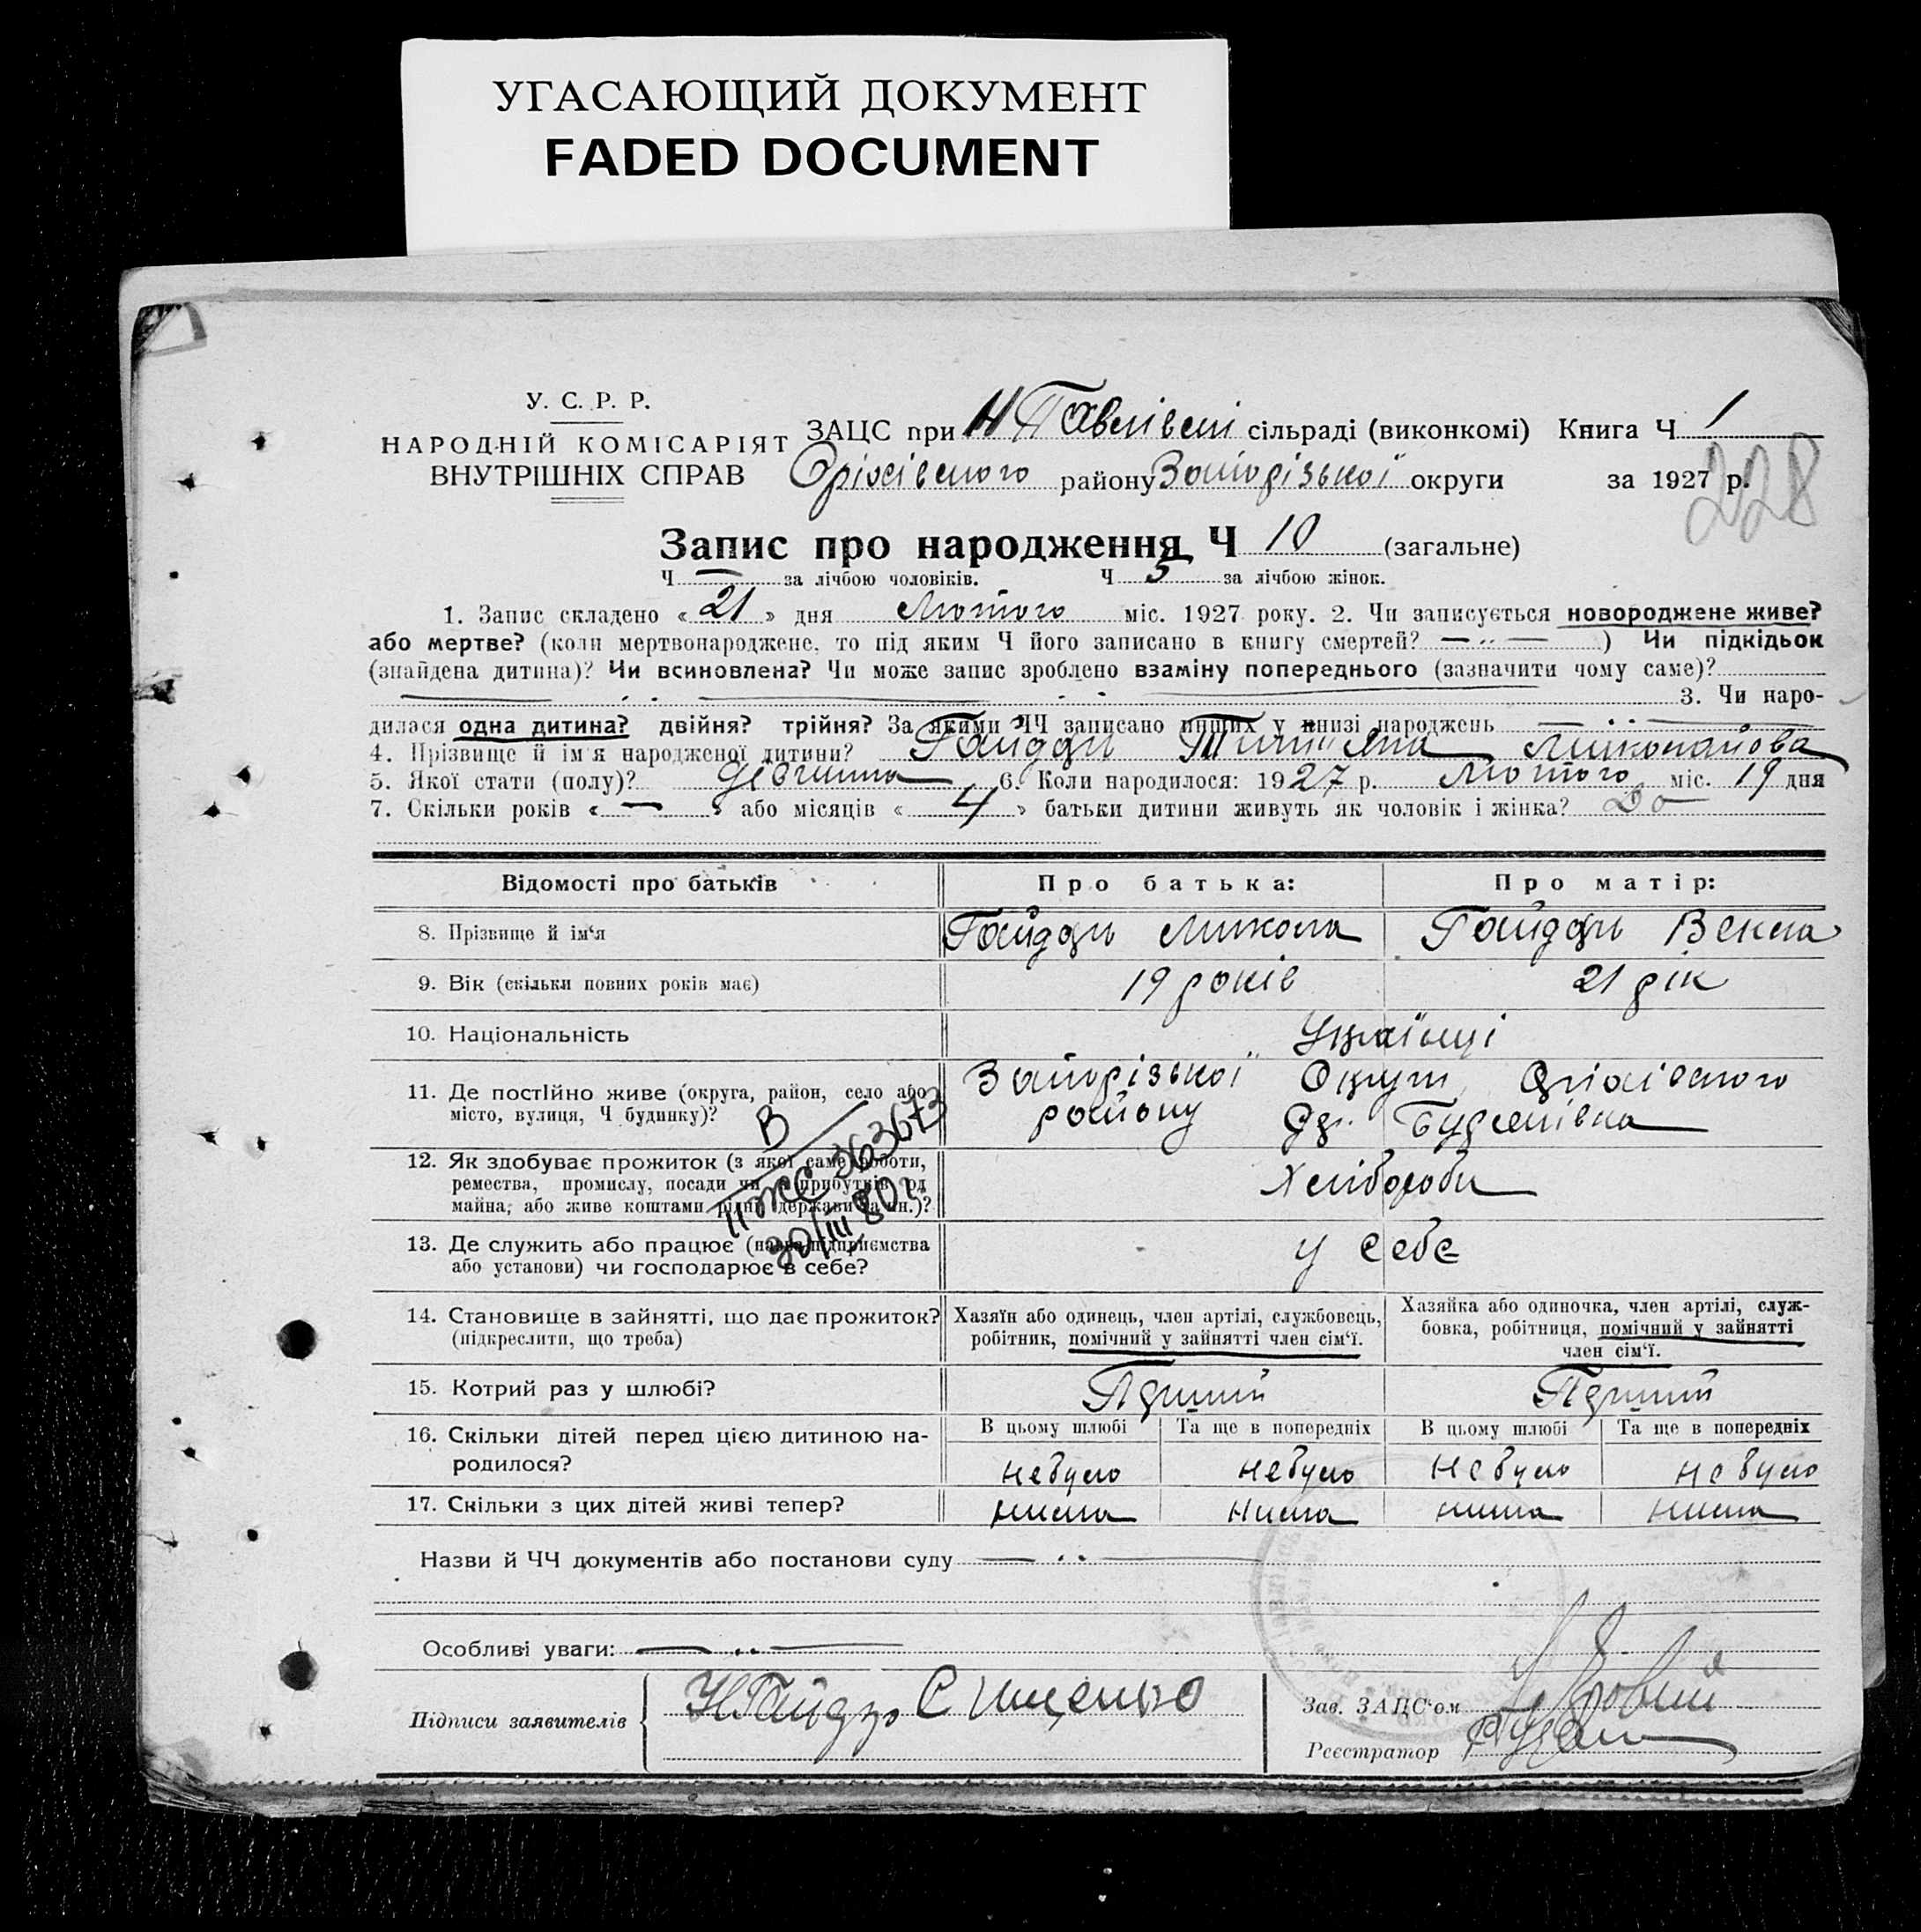 УГАСАЮЩИЙ ДОКУМЕНТ
FADED DOCUMENT
У. С. Р. Р.
НАРОДНІЙ КОМІСАРІЯТ
ВНУТРІШНІХ СПРАВ
ЗАЦС при Н Павлівскі сільраді (виконкомі) Книга Ч 1
Оріхівського району Запорізької округи за 1927 р.
228
Запис про народження Ч 10 (загальне)
Ч — за лічбою чоловіків. Ч 5 за лічбою жінок.
1. Запис складено « 21 » дня Лютого міс. 1927 року. 2. Чи записується новороджене живе?
або мертве? (коли мертвонароджене, то під яким Ч його записано в книгу смертей? ) Чи підкідьок
(знайдена дитина)? Чи всиновлена? Чи може запис зроблено взаміну попереднього (зазначити чому саме)?
3. Чи наро-
дилася одна дитина? двійня? трійня? За якими ЧЧ записано инших у книзі народжень
4. Прізвище й ім'я народженої дитини? Гайдар Миколайова
5. Якої стати (полу)? Девчина 6. Коли народилося: 1927 р. Лютого міс. 19 дня
7. Скільки років « — » або місяців « 4 » батьки дитини живуть як чоловік і жінка?
Відомості про батьків Про батька: Про матір:
8. Прізвище й ім'я Гайдар Микола Гайдар Векла
9. Вік (скільки повних років має) 19 років 21 рік
10. Національність Українці
11. Де постійно живе (округа, район, село або Запорізької Округи Оріхівського
місто, вулиця, Ч будинку)? району
В
12. Як здобуває прожиток (з якої саме роботи, Хлібороби
ремества, промислу, посади чи з прибутків од
майна, або живе коштами рідні, держави та ин.)?
II ЖС 363673
30/III 80 г.
13. Де служить або працює (назва підприємства у себе
або установи) чи господарює в себе?
14. Становище в зайнятті, що дає прожиток? Хазяїн або одинець, член артілі, службовець, Хазяйка або одиночка, член артілі, служ-
(підкреслити, що треба) робітник, помічний у зайнятті член сім'ї. бовка, робітниця, помічний у зайнятті
член сім'ї.
15. Котрий раз у шлюбі? Перший Перший
16. Скільки дітей перед цією дитиною на- В цьому шлюбі Та ще в попередніх В цьому шлюбі Та ще в попередніх
родилося? небуло небуло небуло небуло
17. Скільки з цих дітей живі тепер? нима нима нима нима
Назви й ЧЧ документів або постанови суду
Особливі уваги:
Підписи заявителів
Зав. ЗАЦС'ом
Реєстратор